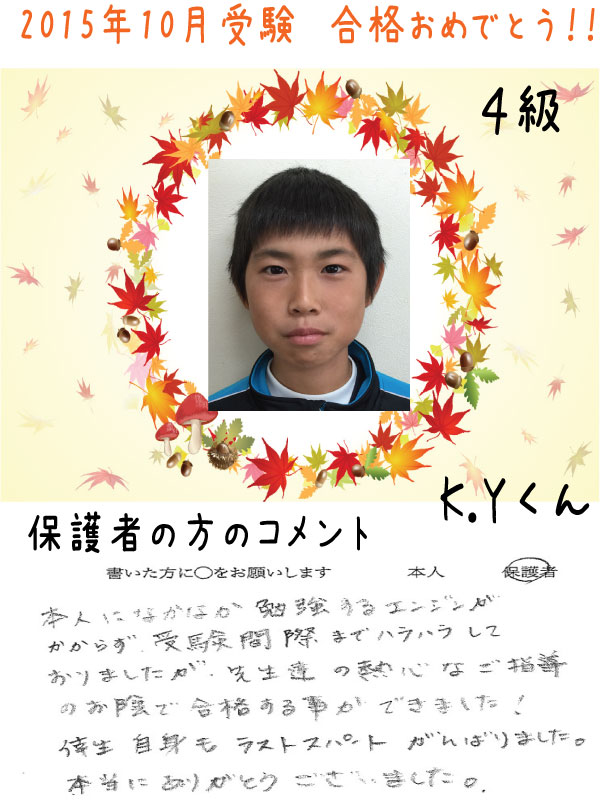 2015年10月受験　合格おめでとう!!
4級
K.Yくん
保護者の方のコメント
書いた方に○をお願いします　本人　保護者
本人になかなか勉強するエンジンが
かからず、受験間際までハラハラして
おりましたが、先生達の熱心なご指導
のお陰で合格する事ができました!
自身もラストスパートがんばりました。
本当にありがとうございました。